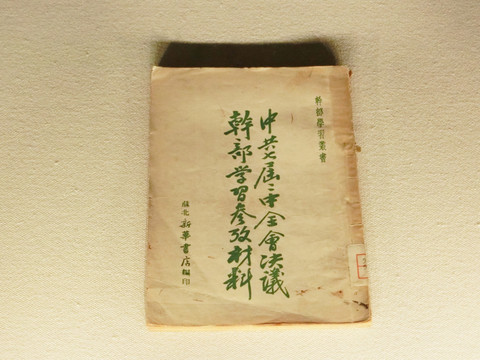 幹部學習叢書
中共七屆二中全會決議
幹部学習參攷材料
新華書店編印